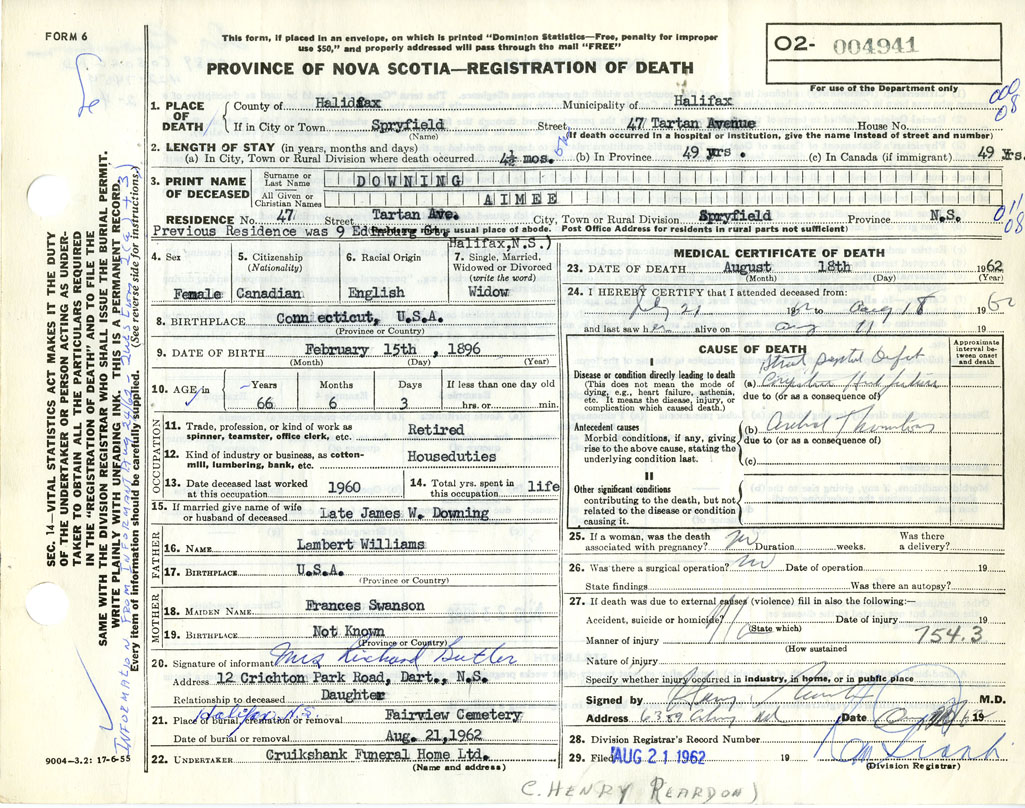 FORM 6
This form, if placed in an envelope, on which is printed "Dominion Statistics—Free, penalty for improper
use $50," and properly addressed will pass through the mail "FREE"
PROVINCE OF NOVA SCOTIA—REGISTRATION OF DEATH
O2- 004941
For use of the Department only
000
08
1. PLACE OF DEATH
County of Halidfax Municipality of Halifax
If in City or Town Spryfield Street 47 Tartan Avenue House No.
(Name) (If death occurred in a hospital or institution, give the name instead of street and number)
2. LENGTH OF STAY (in years, months and days)
(a) In City, Town or Rural Division where death occurred 4½ mos. (b) In Province 49 yrs. (c) In Canada (if immigrant) 49 Yrs.
3. PRINT NAME OF DECEASED
Surname or Last Name DOWNING
All Given or Christian Names AIMEE
RESIDENCE No. 47 Street Tartan Ave. City, Town or Rural Division Spryfield Province N.S.
Previous Residence was 9 Edinburg St. usual place of abode. Post Office Address for residents in rural parts not sufficient)
Halifax,N.S.)
4. Sex Female
5. Citizenship (Nationality) Canadian
6. Racial Origin English
7. Single, Married, Widowed or Divorced (write the word) Widow
8. BIRTHPLACE Connecticut, U.S.A.
(Province or Country)
9. DATE OF BIRTH February 15th, 1896
(Month) (Day) (Year)
10. AGE in Years Months Days If less than one day old
66 6 3 hrs. or min.
OCCUPATION
11. Trade, profession, or kind of work as spinner, teamster, office clerk, etc. Retired
12. Kind of industry or business, as cotton-mill, lumbering, bank, etc. Houseduties
13. Date deceased last worked at this occupation 1960
14. Total yrs. spent in this occupation life
15. If married give name of wife or husband of deceased Late James W. Downing
FATHER
16. NAME Lambert Williams
17. BIRTHPLACE U.S.A.
(Province or Country)
MOTHER
18. MAIDEN NAME Frances Swanson
19. BIRTHPLACE Not Known
(Province or Country)
20. Signature of informant Mrs Richard Butler
Address 12 Crichton Park Road, Dart., N.S.
Relationship to deceased Daughter
Halifax N.S.
21. Place of burial, cremation or removal Fairview Cemetery
Date of burial or removal Aug. 21,1962
22. UNDERTAKER Cruikshank Funeral Home Ltd.
(Name and address)
9004—3.2: 17-6-55
C. HENRY REARDON)
MEDICAL CERTIFICATE OF DEATH
23. DATE OF DEATH August 18th 1962
(Month) (Day) (Year)
24. I HEREBY CERTIFY that I attended deceased from:
July 21 1962 to Aug 18 1962
and last saw her alive on Aug 11 19
CAUSE OF DEATH
Approximate interval between onset and death
I
Disease or condition directly leading to death
(This does not mean the mode of dying, e.g., heart failure, asthenia, etc. It means the disease, injury, or complication which caused death.)
(a) Congestive Heart failure
due to (or as a consequence of)
Antecedent causes
Morbid conditions, if any, giving rise to the above cause, stating the underlying condition last.
(b)
due to (or as a consequence of)
(c)
II
Other significant conditions
contributing to the death, but not related to the disease or condition causing it.
25. If a woman, was the death associated with pregnancy? no Duration weeks. Was there a delivery?
26. Was there a surgical operation? no Date of operation 19
State findings Was there an autopsy?
27. If death was due to external causes (violence) fill in also the following:—
Accident, suicide or homicide? (State which) Date of injury 19
Manner of injury 754.3
(How sustained
Nature of injury
Specify whether injury occurred in industry, in home, or in public place
Signed by M.D.
Address Date 19
28. Division Registrar's Record Number
29. Filed AUG 21 1962 19
(Division Registrar)
SEC. 14—VITAL STATISTICS ACT MAKES IT THE DUTY
OF THE UNDERTAKER OR PERSON ACTING AS UNDER-
TAKER TO OBTAIN ALL THE PARTICULARS REQUIRED
IN THE "REGISTRATION OF DEATH" AND TO FILE THE
SAME WITH THE DIVISION REGISTRAR WHO SHALL ISSUE THE BURIAL PERMIT.
WRITE PLAINLY WITH UNFADING INK. THIS IS A PERMANENT RECORD.
Every item of information should be carefully supplied. (See reverse side for instructions.)
INFORMATION FROM INFORMANT Aug. 24/62